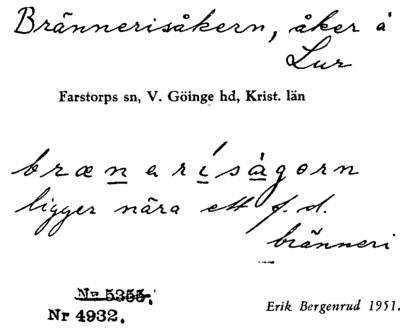 Brännerisåkern, åker å
Lur
Farstorps sn, V. Göinge hd, Krist. län
brænerísågorn
ligger nära ett f. d.
bränneri
Nr 5355.
Nr 4932.
Erik Bergenrud 1951.